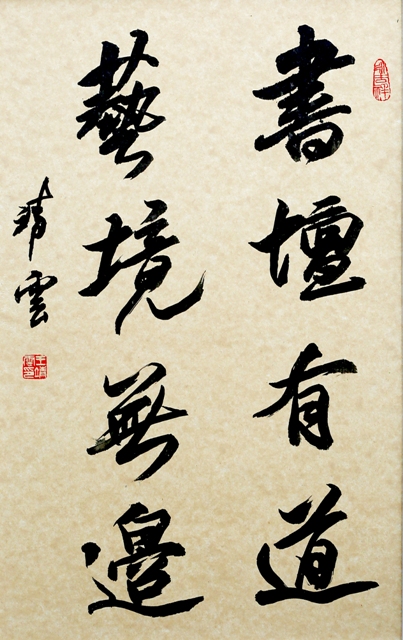 書壇有道
藝境無邊
靖雲